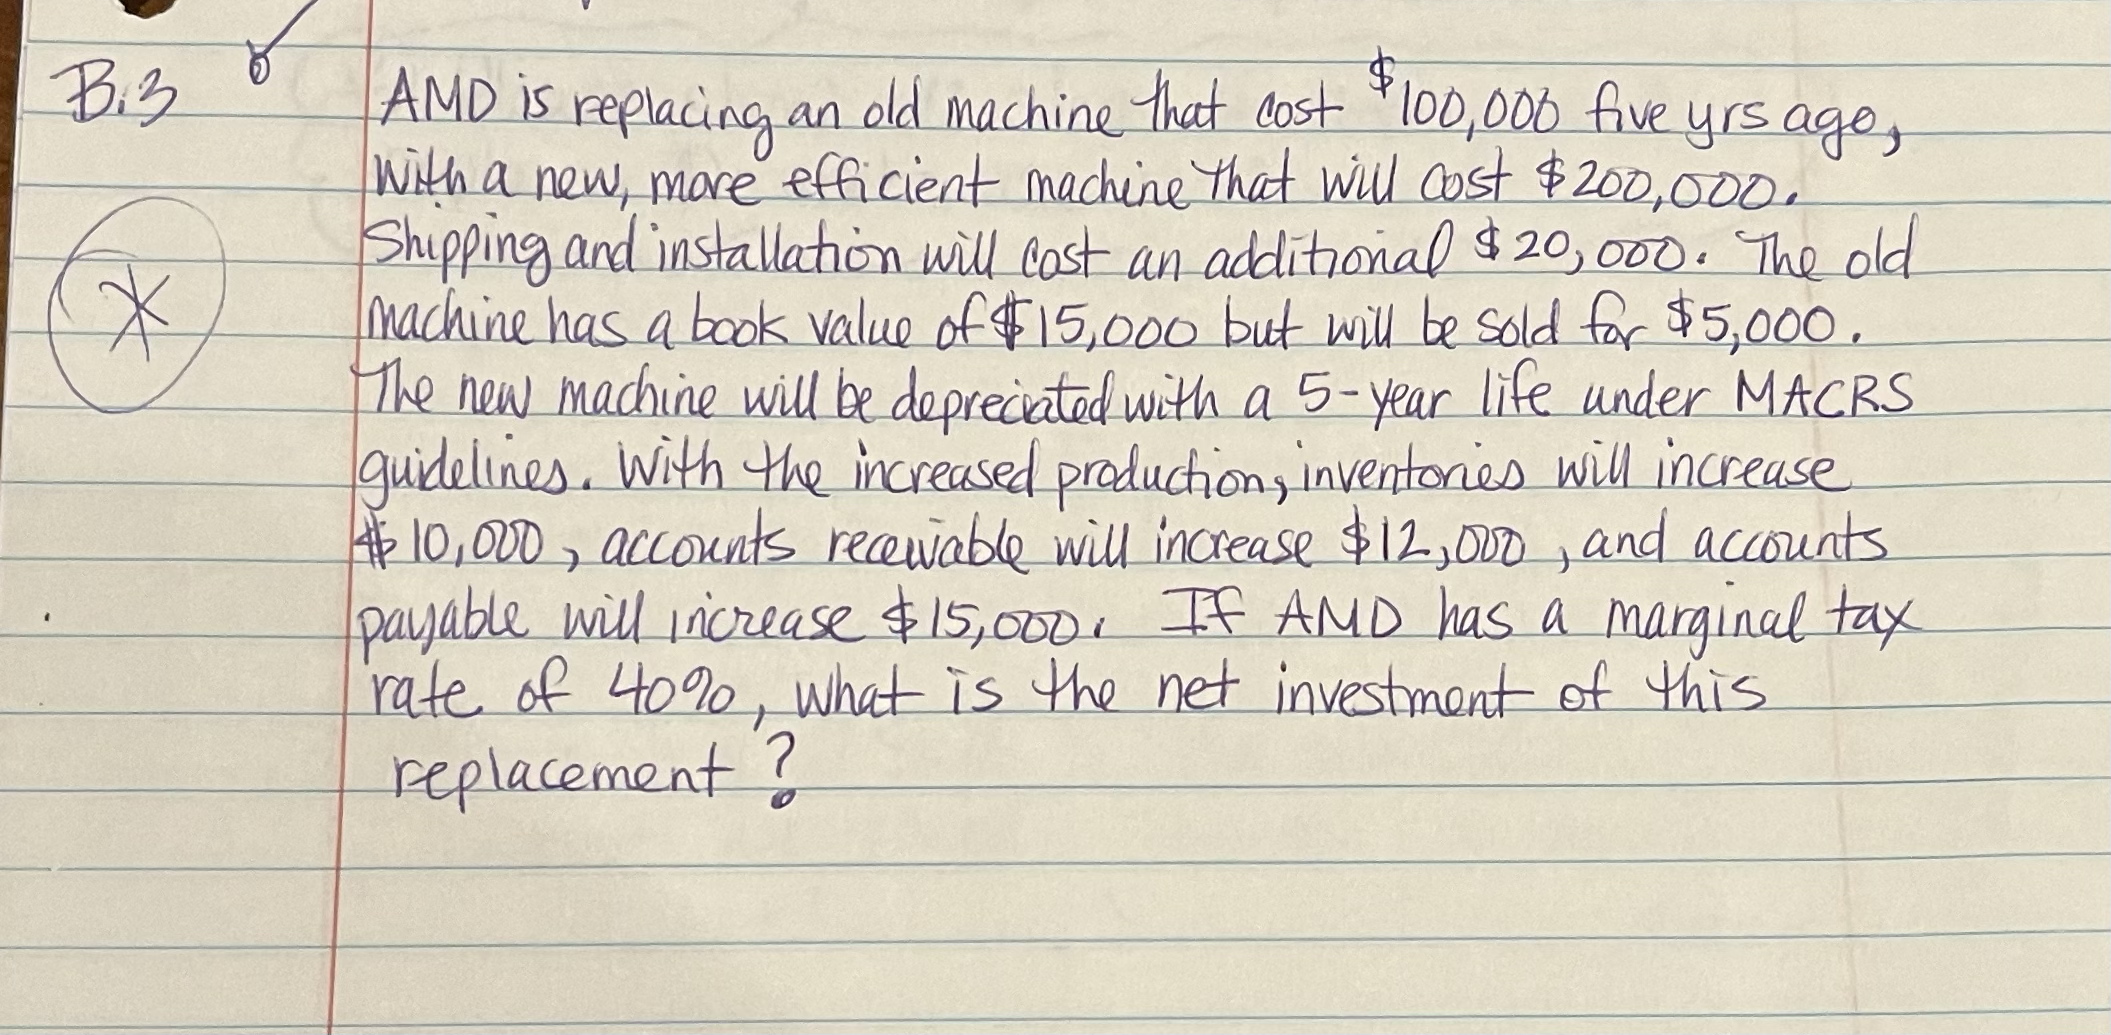 B.3 AMD is replacing an old machine that cost $100,000 five yrs ago,
with a new, more efficient machine that will cost $200,000.
Shipping and installation will cost an additional $20,000. The old
machine has a book value of $15,000 but will be sold for $5,000.
The new machine will be depreciated with a 5-year life under MACRS
guidelines. With the increased production, inventories will increase
$10,000, accounts receivable will increase $12,000, and accounts
payable will increase $15,000. If AMD has a marginal tax
rate of 40%, what is the net investment of this
replacement?